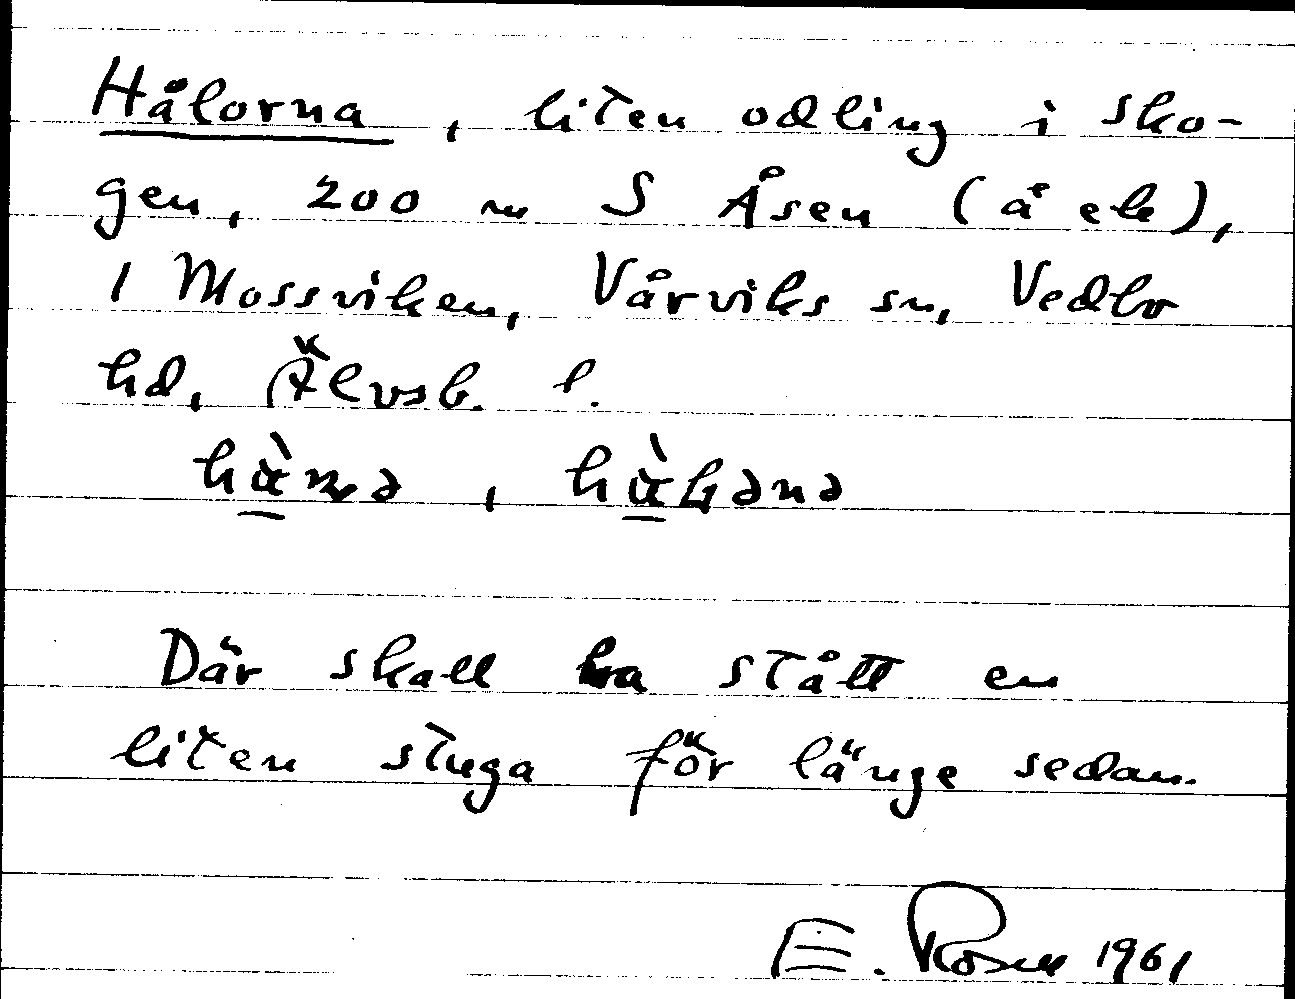 Hålorna, liten odling i sko-
gen, 200 m S Åsen (å ek),
1 Mossviken, Vårviks sn, Vedbo
hd, Älvsb. l.
Där skall ha stått en
liten stuga för länge sedan.
E. Rosell 1961